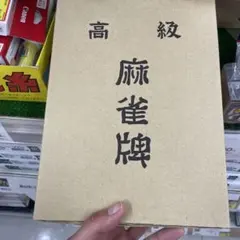 高級
麻雀牌